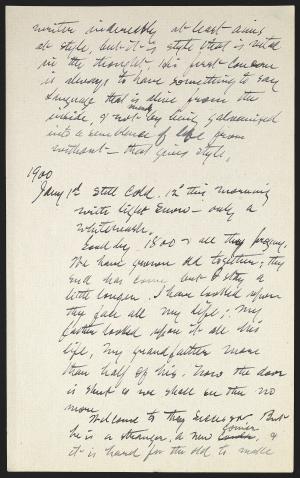 writer indirectly at least aims
at style, but it is style that is vital
in the thought. His first concern
is always to have something to say
Language that is alive from the
inside, & not made by being galvanized
into a semblance of life from
without — that gives style.
1900
Jany 1st Still Cold. 12° this morning
with light snow — only a
whitewash.
Good by 1800 & all thy progeny.
We have grown old together; thy
End has come but I stay a
little longer. I have looked upon
thy face all my life; my
father looked upon it all his
life, my grandfather more
than half of his. Now the door
is shut & we shall see thee no
more.
Welcome to thy Successor. But
he is a stranger, a new comer, &
it is hard for the old to make